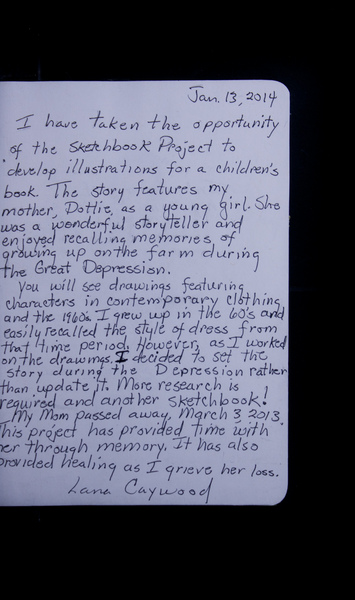 Jan. 13, 2014
I have taken the opportunity
of the Sketchbook Project to
develop illustrations for a children's
book. The story features my
mother, Dottie, as a young girl. She
was a wonderful storyteller and
enjoyed recalling memories of
growing up on the farm during
the Great Depression.
You will see drawings featuring
characters in contemporary clothing
and the 1960s. I grew up in the 60's and
easily recalled the style of dress from
that time period. However, as I worked
on the drawings, I decided to set the
story during the Depression rather
than update it. More research is
required and another sketchbook!
My Mom passed away, March 3, 2013.
This project has provided time with
her through memory. It has also
provided healing as I grieve her loss.
Lana Caywood